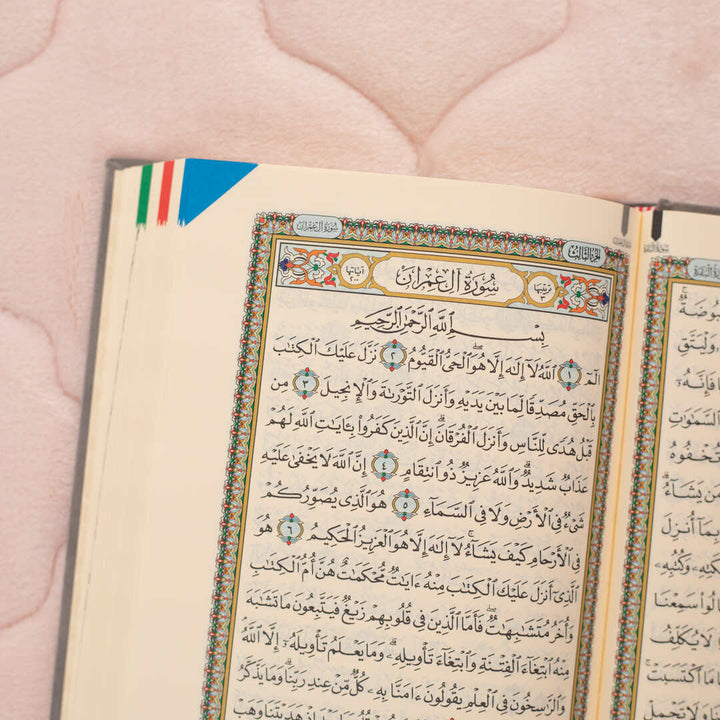 سُورَةُ آلِ عِمْرَانَ
الجزء الثالث
آياتها ٢٠٠
سُورَةُ آلِ عِمْرَانَ
ترتيبها ٣
بِسْمِ ٱللَّهِ ٱلرَّحْمَٰنِ ٱلرَّحِيمِ
الٓمٓ ١ ٱللَّهُ لَآ إِلَٰهَ إِلَّا هُوَ ٱلْحَىُّ ٱلْقَيُّومُ ٢ نَزَّلَ عَلَيْكَ ٱلْكِتَٰبَ
بِٱلْحَقِّ مُصَدِّقًا لِّمَا بَيْنَ يَدَيْهِ وَأَنزَلَ ٱلتَّوْرَىٰةَ وَٱلْإِنجِيلَ ٣ مِن
قَبْلُ هُدًى لِّلنَّاسِ وَأَنزَلَ ٱلْفُرْقَانَۗ إِنَّ ٱلَّذِينَ كَفَرُوا۟ بِـَٔايَٰتِ ٱللَّهِ لَهُمْ
عَذَابٌ شَدِيدٌۗ وَٱللَّهُ عَزِيزٌ ذُو ٱنتِقَامٍ ٤ إِنَّ ٱللَّهَ لَا يَخْفَىٰ عَلَيْهِ
شَىْءٌ فِى ٱلْأَرْضِ وَلَا فِى ٱلسَّمَآءِ ٥ هُوَ ٱلَّذِى يُصَوِّرُكُمْ
فِى ٱلْأَرْحَامِ كَيْفَ يَشَآءُۚ لَآ إِلَٰهَ إِلَّا هُوَ ٱلْعَزِيزُ ٱلْحَكِيمُ ٦ هُوَ
ٱلَّذِىٓ أَنزَلَ عَلَيْكَ ٱلْكِتَٰبَ مِنْهُ ءَايَٰتٌ مُّحْكَمَٰتٌ هُنَّ أُمُّ ٱلْكِتَٰبِ
وَأُخَرُ مُتَشَٰبِهَٰتٌۖ فَأَمَّا ٱلَّذِينَ فِى قُلُوبِهِمْ زَيْغٌ فَيَتَّبِعُونَ مَا تَشَٰبَهَ
مِنْهُ ٱبْتِغَآءَ ٱلْفِتْنَةِ وَٱبْتِغَآءَ تَأْوِيلِهِۦۗ وَمَا يَعْلَمُ تَأْوِيلَهُۥٓ إِلَّا ٱللَّهُۗ
وَٱلرَّٰسِخُونَ فِى ٱلْعِلْمِ يَقُولُونَ ءَامَنَّا بِهِۦ كُلٌّ مِّنْ عِندِ رَبِّنَاۗ وَمَا يَذَّكَّرُ
فَإِنَّهُۥٓ
ٱلسَّمَٰوَٰتِ
تُخْفُوهُ
مَن يَشَآءُ
بِمَآ أُنزِلَ
وَكُتُبِهِۦ
سَمِعْنَا
لَا يُكَلِّفُ
ٱكْتَسَبَتْ
وَلَا تَحْمِلْ